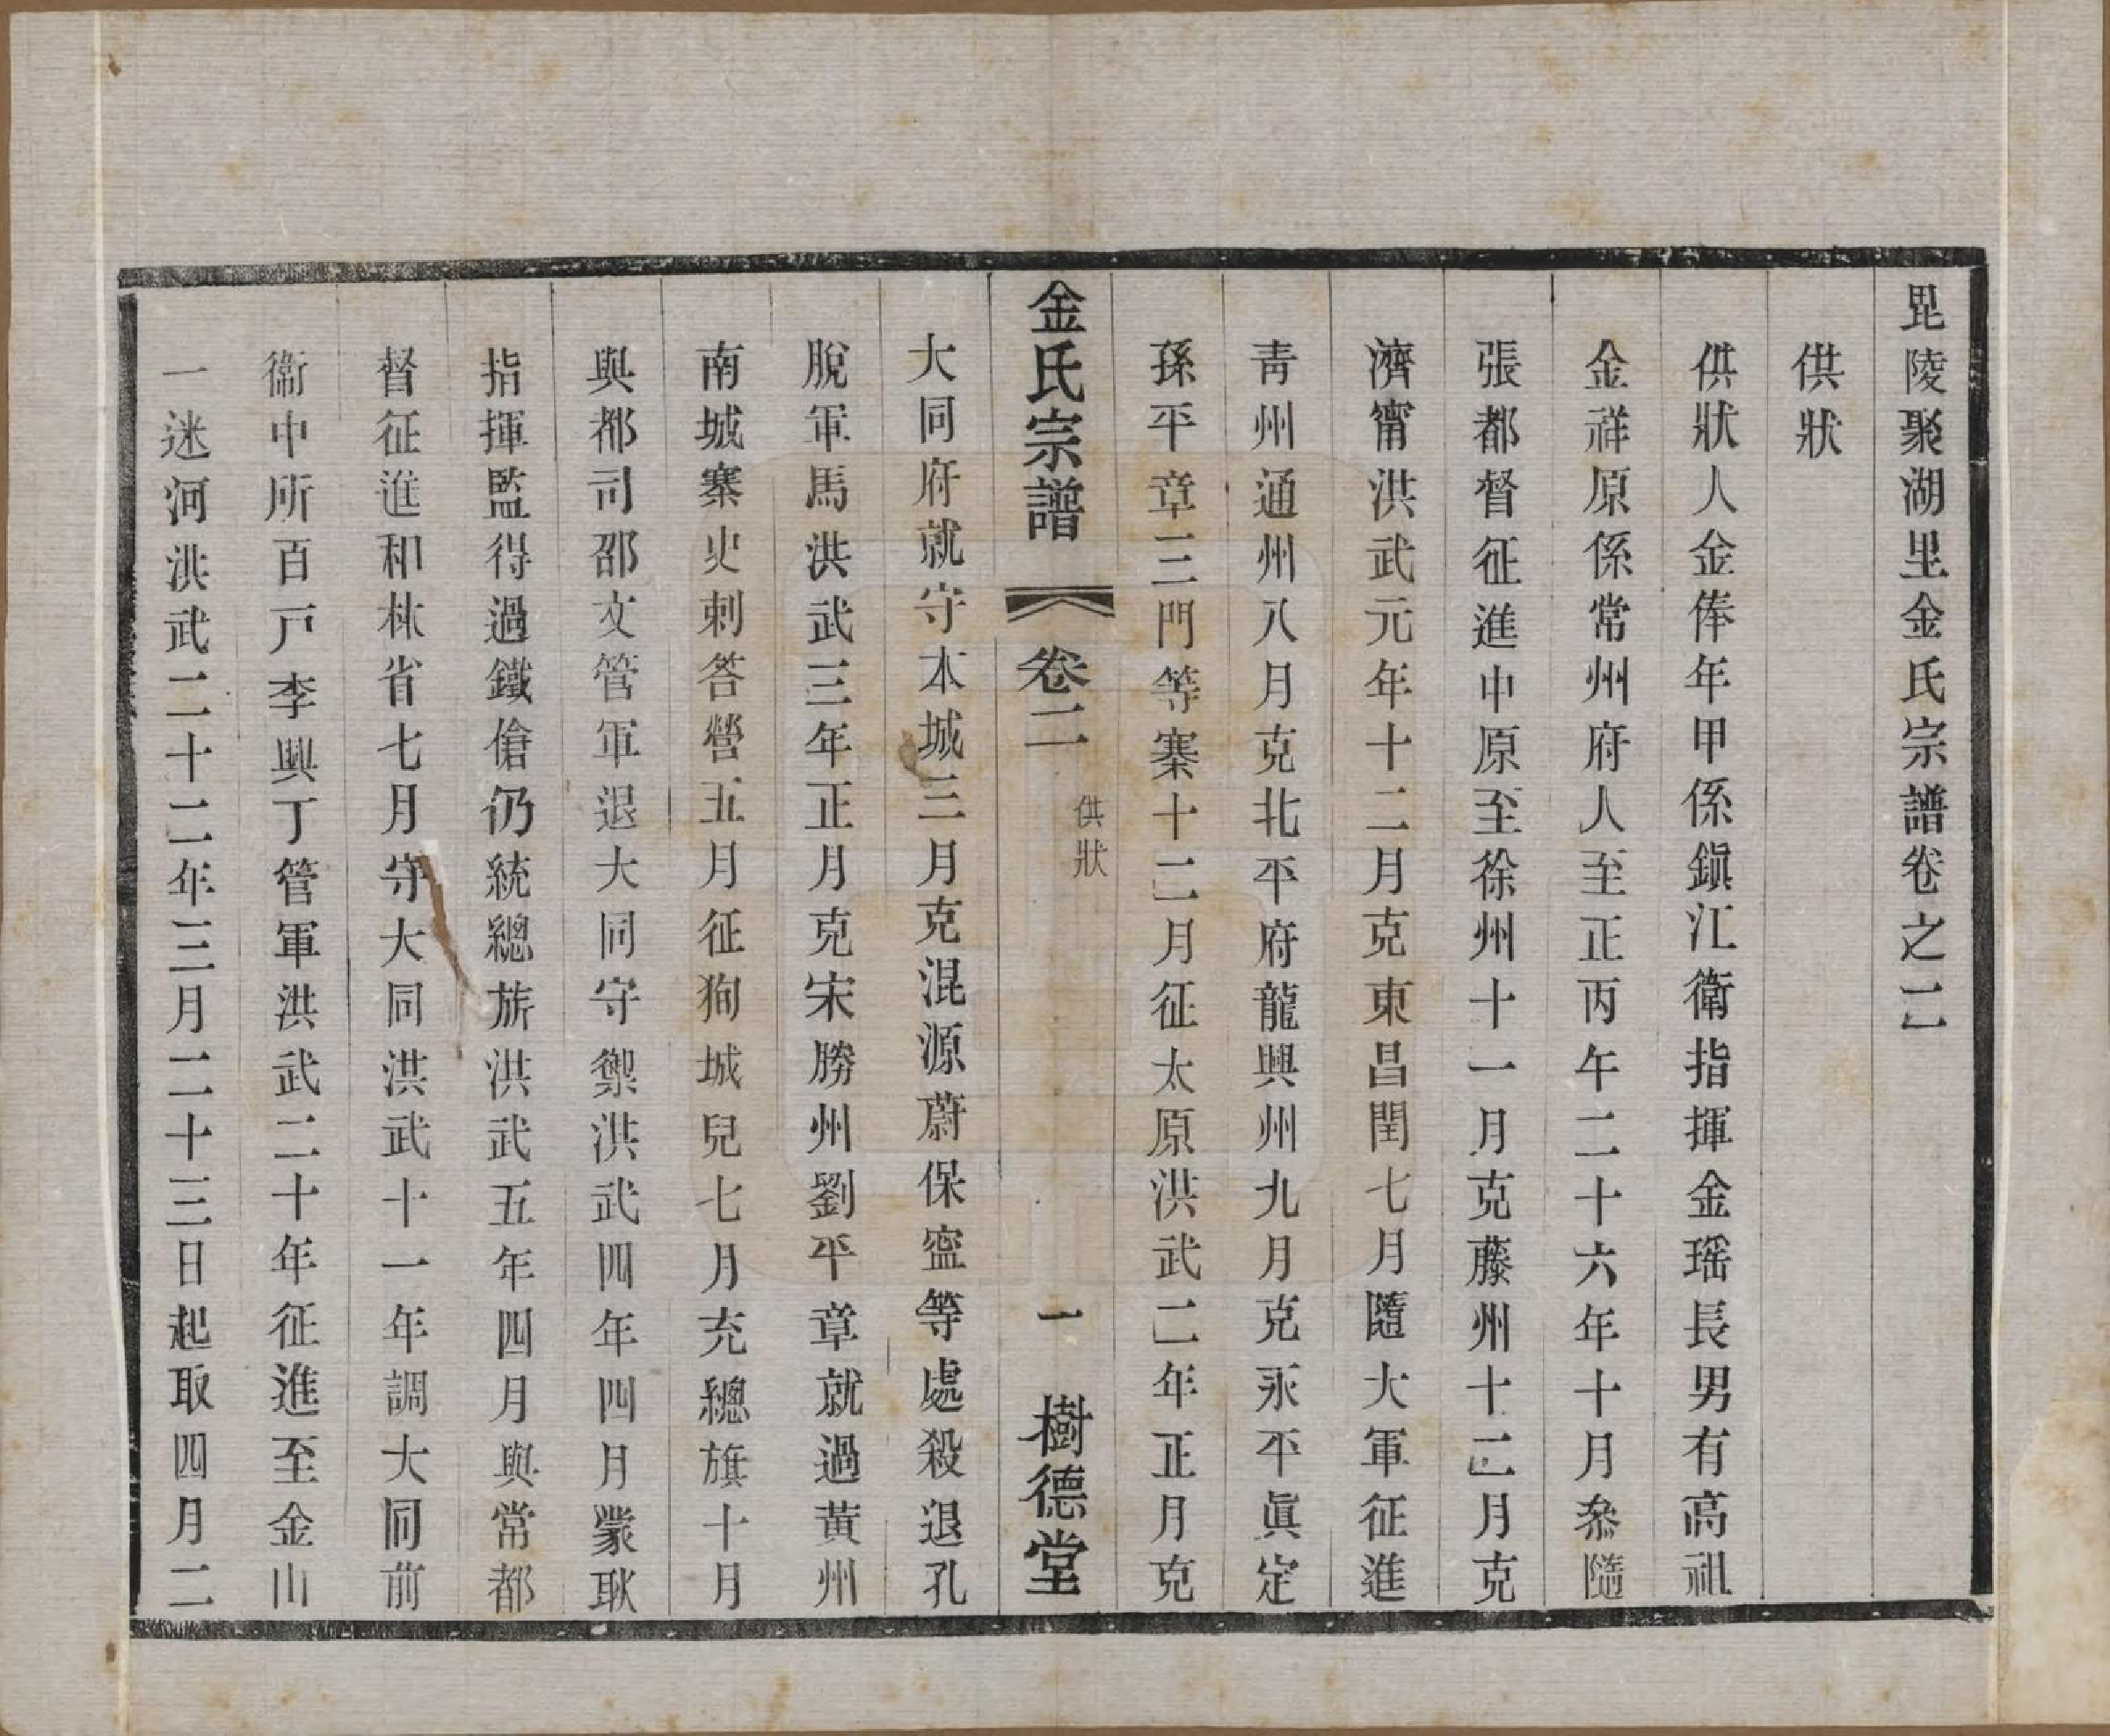 毘陵聚湖里金氏宗譜卷之二
供狀
供狀人金俸年甲係鎭江衛指揮金瑶長男有高祖
金祥原係常州府人至正丙午二十六年十月叅隨
張都督征進中原至徐州十一月克藤州十二月克
濟甯洪武元年十二月克東昌閏七月隨大軍征進
靑州通州八月克北平府龍興州九月克永平眞定
孫平章三門等寨十二月征太原洪武二年正月克
金氏宗譜 卷二 供狀 一 樹德堂
大同府就守本城三月克混源蔚保寍等處殺退孔
脫軍馬洪武三年正月克宋勝州劉平章就過黃州
南城寨史刺答營五月征狥城兒七月充總旗十月
與都司邵文管軍退大同守禦洪武四年四月蒙耿
指揮監得過鐵傖仍統總旂洪武五年四月與常都
督征進和林省七月守大同洪武十一年調大同前
衞中所百戸李興丁管軍洪武二十年征進至金山
一迷河洪武二十二年三月二十三日起取四月二